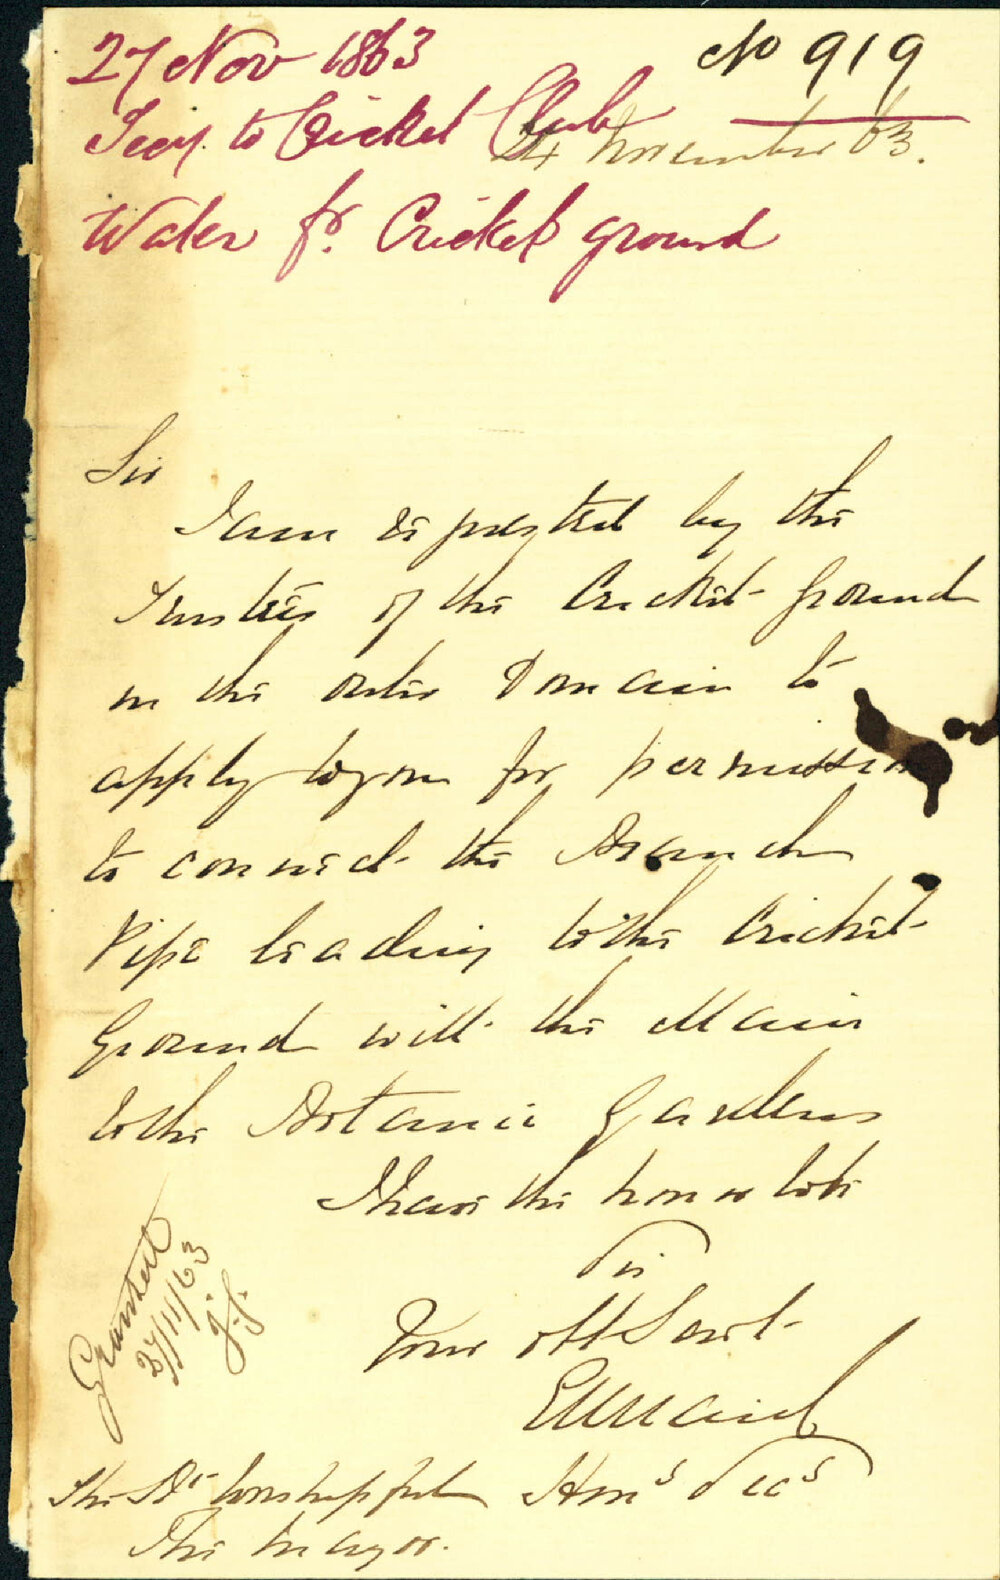 27 Nov 1863
No 919
Secy. to Cricket Club
24 November 63.
Water fr. Cricket ground
Sir
I am requested by the
Trustees of the Cricket Ground
in the outer Domain to
apply to you for permission
to connect the Branch
Pipe leading to the Cricket
Ground with the Main
to the Botanic Gardens
I have the honor to be
Sir
Your obt Servt
Hons Secs
The Rt Worshipful
The Mayor.
Granted
27/11/63